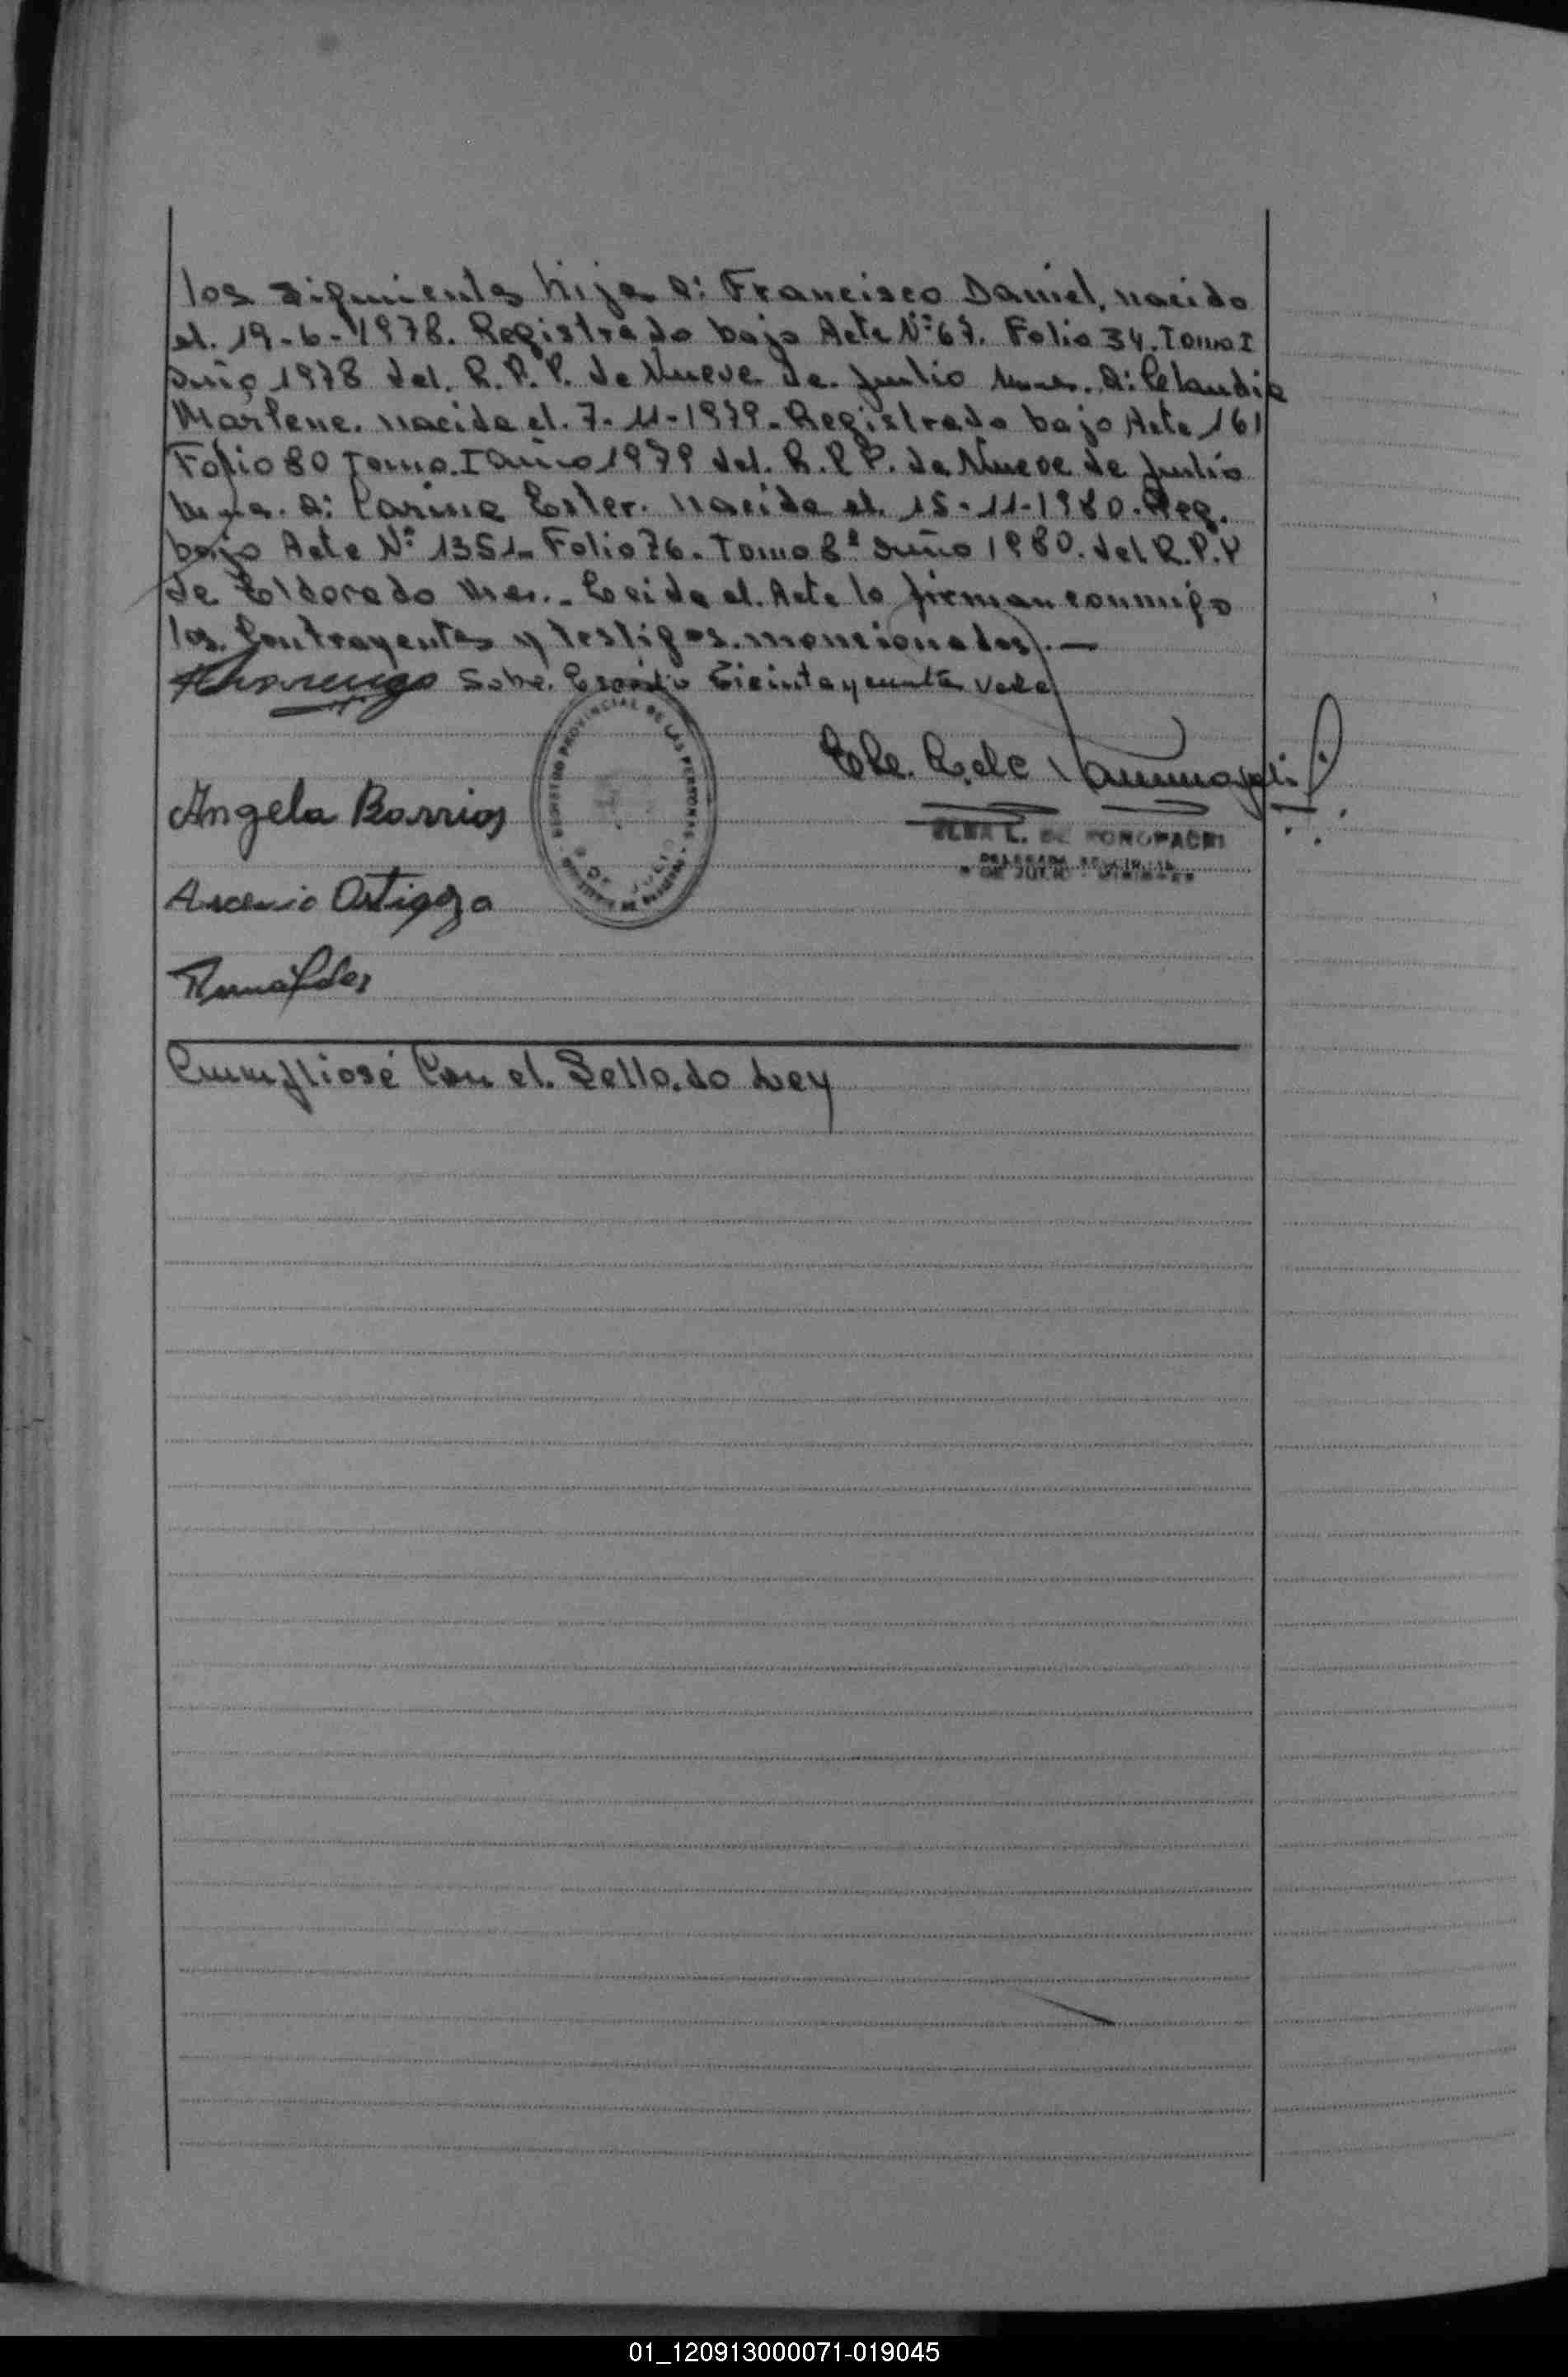 los siguientes hijos a: Francisco Daniel, nacido
el. 19-6-1978. Registrado bajo Acta Nº 67. Folio 34. Tomo I
Año 1978 del. R.P.P. de Nueve de Julio Mnes. A: Claudia
Marlene. nacida el. 7-11-1979. Registrado bajo Acta 161
Folio 80 Tomo. I año 1979 del. R.P.P. de Nueve de Julio
Mnes. a: Carina Ester. nacida el. 15-11-1980. Reg.
bajo Acta Nº 1351. Folio 76. Tomo 8º Año 1980. del R.P.P
de Eldorado Mnes.- Leida el. Acta lo firman conmigo
los. Contrayentes y testigos. mencionados).—
Sobre. Escrito y cuatro Vale
REGISTRO PROVINCIAL DE LAS PERSONAS
9 DE JULIO
Angela Barrios
ELBA L. DE
DELEGADA
9 DE JULIO - MISIONES
Ascencio Ortigoza
Cumpliose Con el. Sello. do Ley
01_120913000071-019045